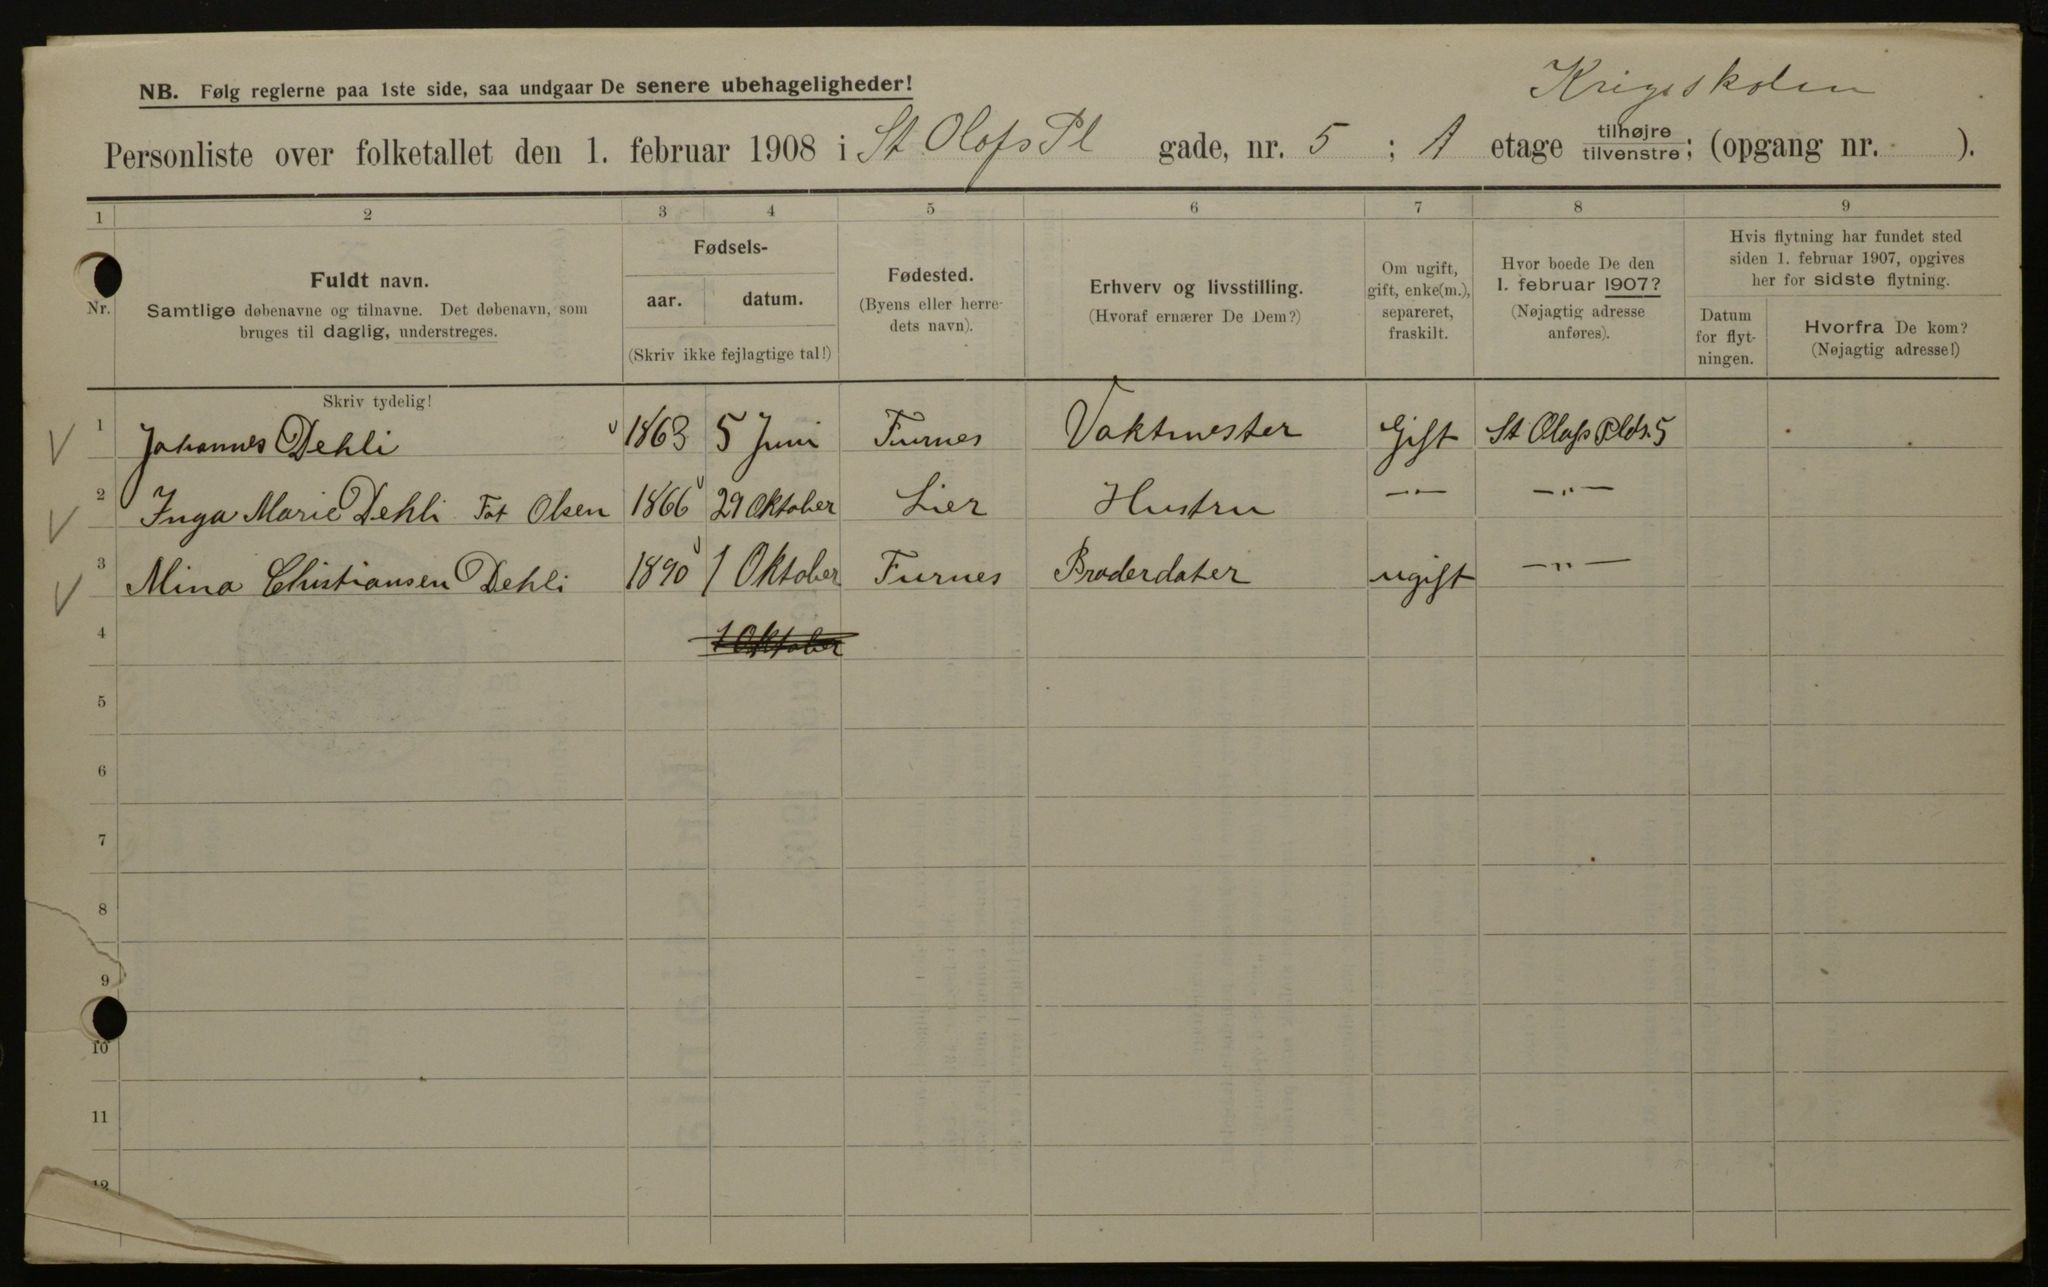 Krigsskolen
NB. Følg reglerne paa 1ste side, saa undgaar De senere ubehageligheder!
Personliste over folketallet den 1. februar 1908 i St Olafs Pl gade, nr. 5 ; A etage tilhøjre tilvenstre; (opgang nr. ).
1 2 3 4 5 6 7 8 9
Nr.
Fuldt navn.
Samtlige døbenavne og tilnavne. Det døbenavn, som
bruges til daglig, understreges.
Fødsels-
aar. datum.
(Skriv ikke fejlagtige tal!)
Fødested.
(Byens eller herre-
dets navn).
Erhverv og livsstilling.
(Hvoraf ernærer De Dem?)
Om ugift,
gift, enke(m.),
separeret,
fraskilt.
Hvor boede De den
1. februar 1907?
(Nøjagtig adresse
anføres).
Hvis flytning har fundet sted
siden 1. februar 1907, opgives
her for sidste flytning.
Datum
for flyt-
ningen.
Hvorfra De kom?
(Nøjagtig adresse!)
Skriv tydelig!
1 Johannes Dehli 1863 5 Juni Furnes Vaktmester Gift St Olafs Plds. 5
2 Inga Marie Dehli Føt Olsen 1866 29 Oktober Lier Hustru —„— —„—
3 Mina Christiansen Dehli 1890 1 Oktober Furnes Broderdater ugift —„—
4 1 Oktober
5
6
7
8
9
10
11
12